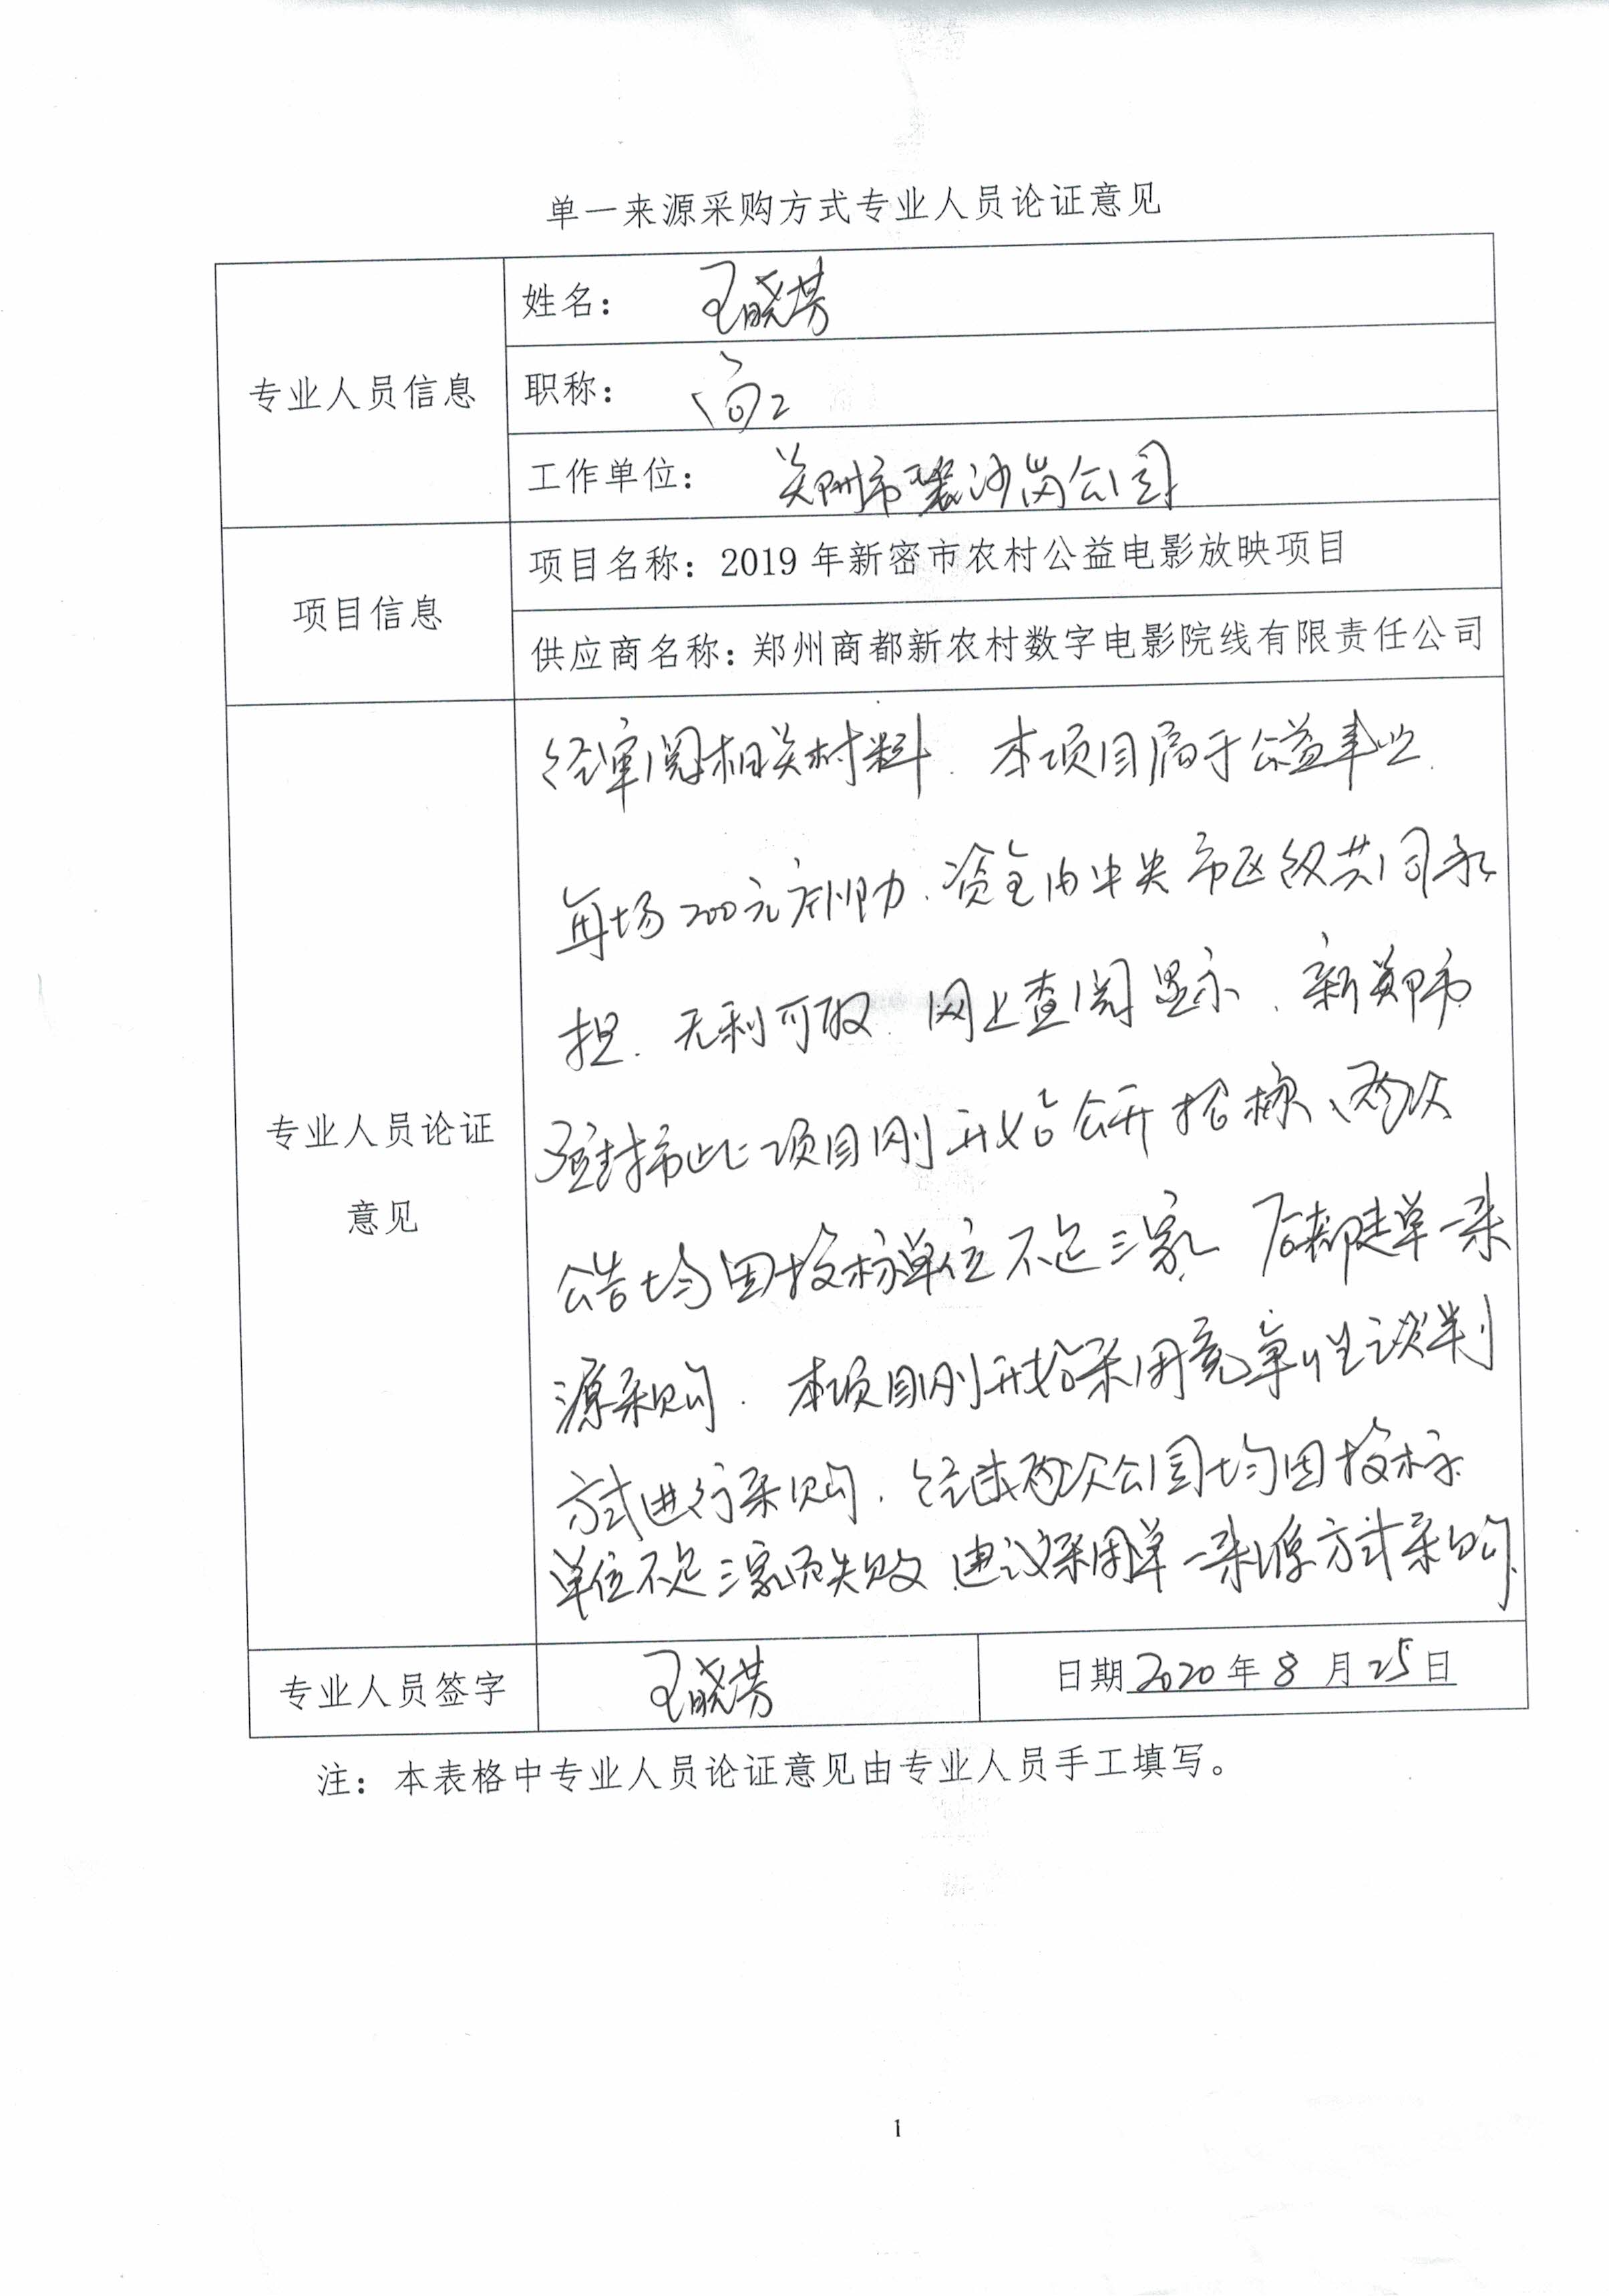 单一来源采购方式专业人员论证意见
专业人员信息
姓名： 王晓芳
职称： 高工
工作单位： 郑州市裴沙岗公司
项目信息
项目名称：2019年新密市农村公益电影放映项目
供应商名称：郑州商都新农村数字电影院线有限责任公司
专业人员论证
意见
经审阅相关材料，本项目属于公益事业，
每场200元补助，资金由中央市区级共同承
担，无利可取，网上查阅显示，新郑市
登封市此项目刚开始公开招标，两次
公告均因投标单位不足三家，后都走单一来
源采购，本项目刚开始采用竞争性谈判
方式进行采购，经过两次公告均因投标
单位不足三家而失败，建议采用单一来源方式采购。
专业人员签字
王晓芳
日期2020年8月25日
注：本表格中专业人员论证意见由专业人员手工填写。
1